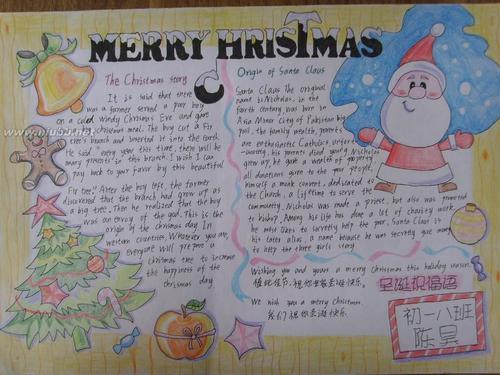 MERRY CHRISTMAS
The Christmas story
It is said that there
was a farmer served a poor boy
on a cold windy Christmas Eve and gave
Christmas meal. The boy cut a Fir
tree's branch and inserted it into the earth
He said "every year this time, there will be
many presents in this branch. I wish I can
pay back to your favor by this beautiful
Fir tree." After the boy left, the former
discovered that the branch had grown up as
a big tree. Then he realized that the boy
was an envoy of the god. This is the
origin of the christmas day. In
western countries, Whatever you are,
everyone will prepare a
christmas time to increase
the happiness of the
christmas day
Origin of Santa Claus
Santa Claus the original
name is Nicholas, in the
fourth century was born in
Asia Minor City of Pakistan big
pull, the family wealth, parents
are enthusiastic Catholics
his parents died young Nicholas
grew up, he gave a wealth of property
all donations given to the poor people,
himself a monk convert, dedicated to
the Church, a lifetime to serve the
community. Nicholas was made a priest, but also was promoted
to bishop. Among his life has done a lot of charity work
he most likes to secretly help the poor. Santa Claus is
his later alias, a name because he was secretly give money
to help the three girls story
Wishing you and yours a merry Christmas this holiday season.
值此佳节,祝你全家圣诞快乐.
We wish you a merry Christmas.
我们祝你圣诞快乐.
圣诞祝福语
初一八班
陈昊